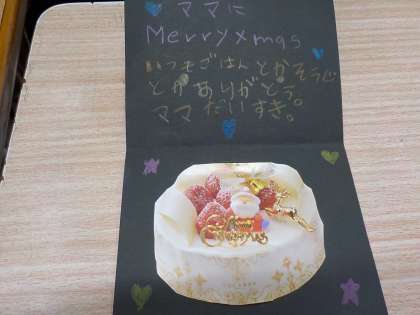 ママに
Merry xmas
いつもごはんとかそうじ
とかありがとう。
ママだいすき。
Merry
Christmas